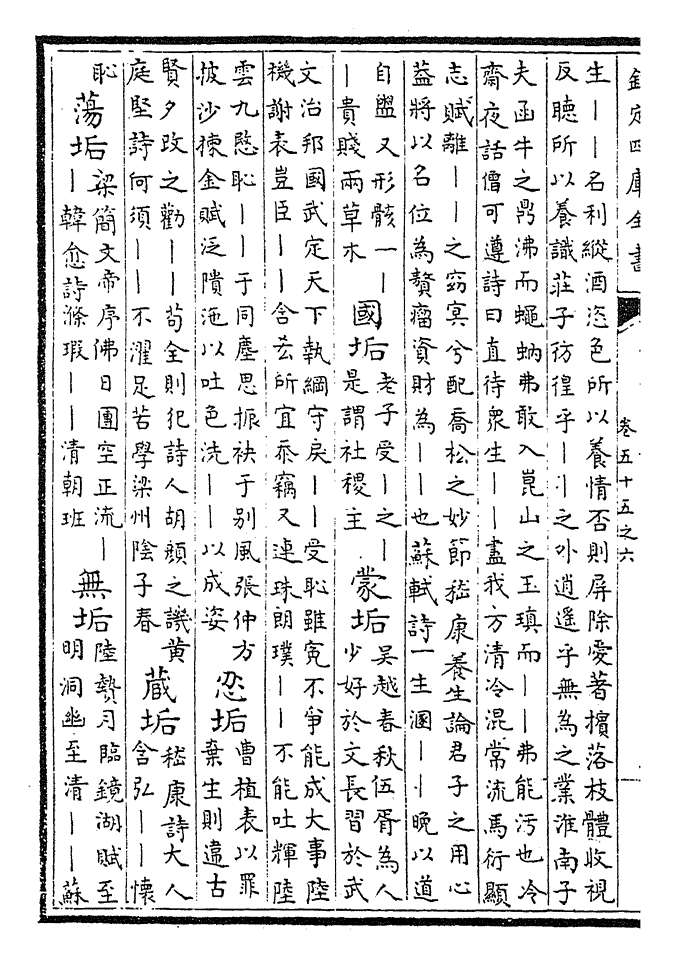 欽定四庫全書
卷五十五之六
生——名利縱酒恣色所以養情否則屏除愛著擯落枝體收視
反聽所以養識莊子彷徨乎——之外逍遙乎無為之業淮南子
夫函牛之鼎沸而蠅蚋弗敢入崑山之玉瑱而——弗能污也冷
齋夜話僧可遵詩曰直待衆生——盡我方清冷混常流馬衍顯
志賦離——之窈冥兮配喬松之妙節嵇康養生論君子之用心
益將以名位為贅瘤資財為——也蘇軾詩一生溷——晚以道
自盥又形骸一—
—貴賤兩草木
國垢
老子受—之—
是謂社稷主
蒙垢
吳越春秋伍胥為人
少好於文長習於武
文治邦國武定天下執綱守戾——受恥雖冤不爭能成大事陸
機謝表豈臣——含荄所宜忝竊又連珠朗璞——不能吐輝陸
雲九愍恥——于同塵思振袂于别風張仲方
披沙揀金賦泛隤沲以吐色洗——以成姿
忍垢
曹植表以罪
棄生則違古
賢夕改之勸——苟全則犯詩人胡顏之譏黄
庭堅詩何須——不濯足苦學梁州陰子春
藏垢
嵇康詩大人
含弘——懷
恥
蕩垢
梁簡文帝序佛日團空正流—
—韓愈詩滌瑕——清朝班
無垢
陸贄月臨鏡湖賦至
明洞幽至清——蘇